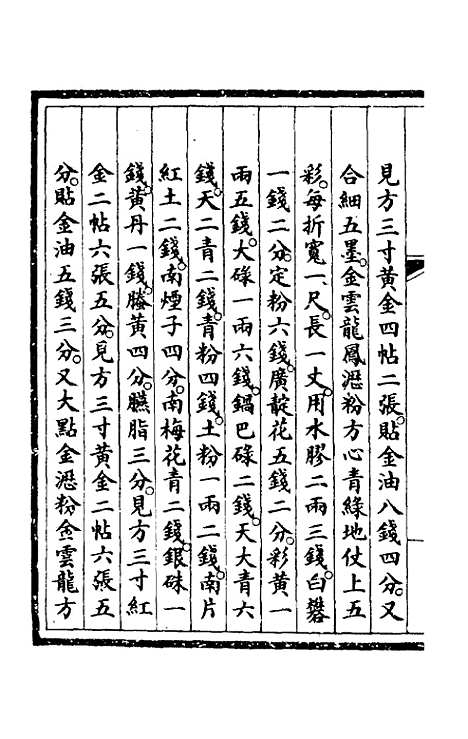 見方三寸黃金四帖二張。貼金油八錢四分。又
合細五墨。金雲龍鳳瀝粉方心青綠地仗上五
彩。每折寬一尺。長一丈。用水膠二兩三錢。白礬
一錢二分。定粉六錢。廣靛花五錢二分。彩黃一
兩五錢。大碌一兩六錢。鍋巴碌二錢。天大青六
錢。天二青二錢。青粉四錢。土粉一兩二錢。南片
紅土二錢。南煙子四分。南梅花青二錢。銀硃一
錢。黃丹一錢。籐黃四分。臙脂三分。見方三寸紅
金二帖六張五分。見方三寸黃金二帖六張五
分。貼金油五錢三分。又大點金瀝粉金雲龍方